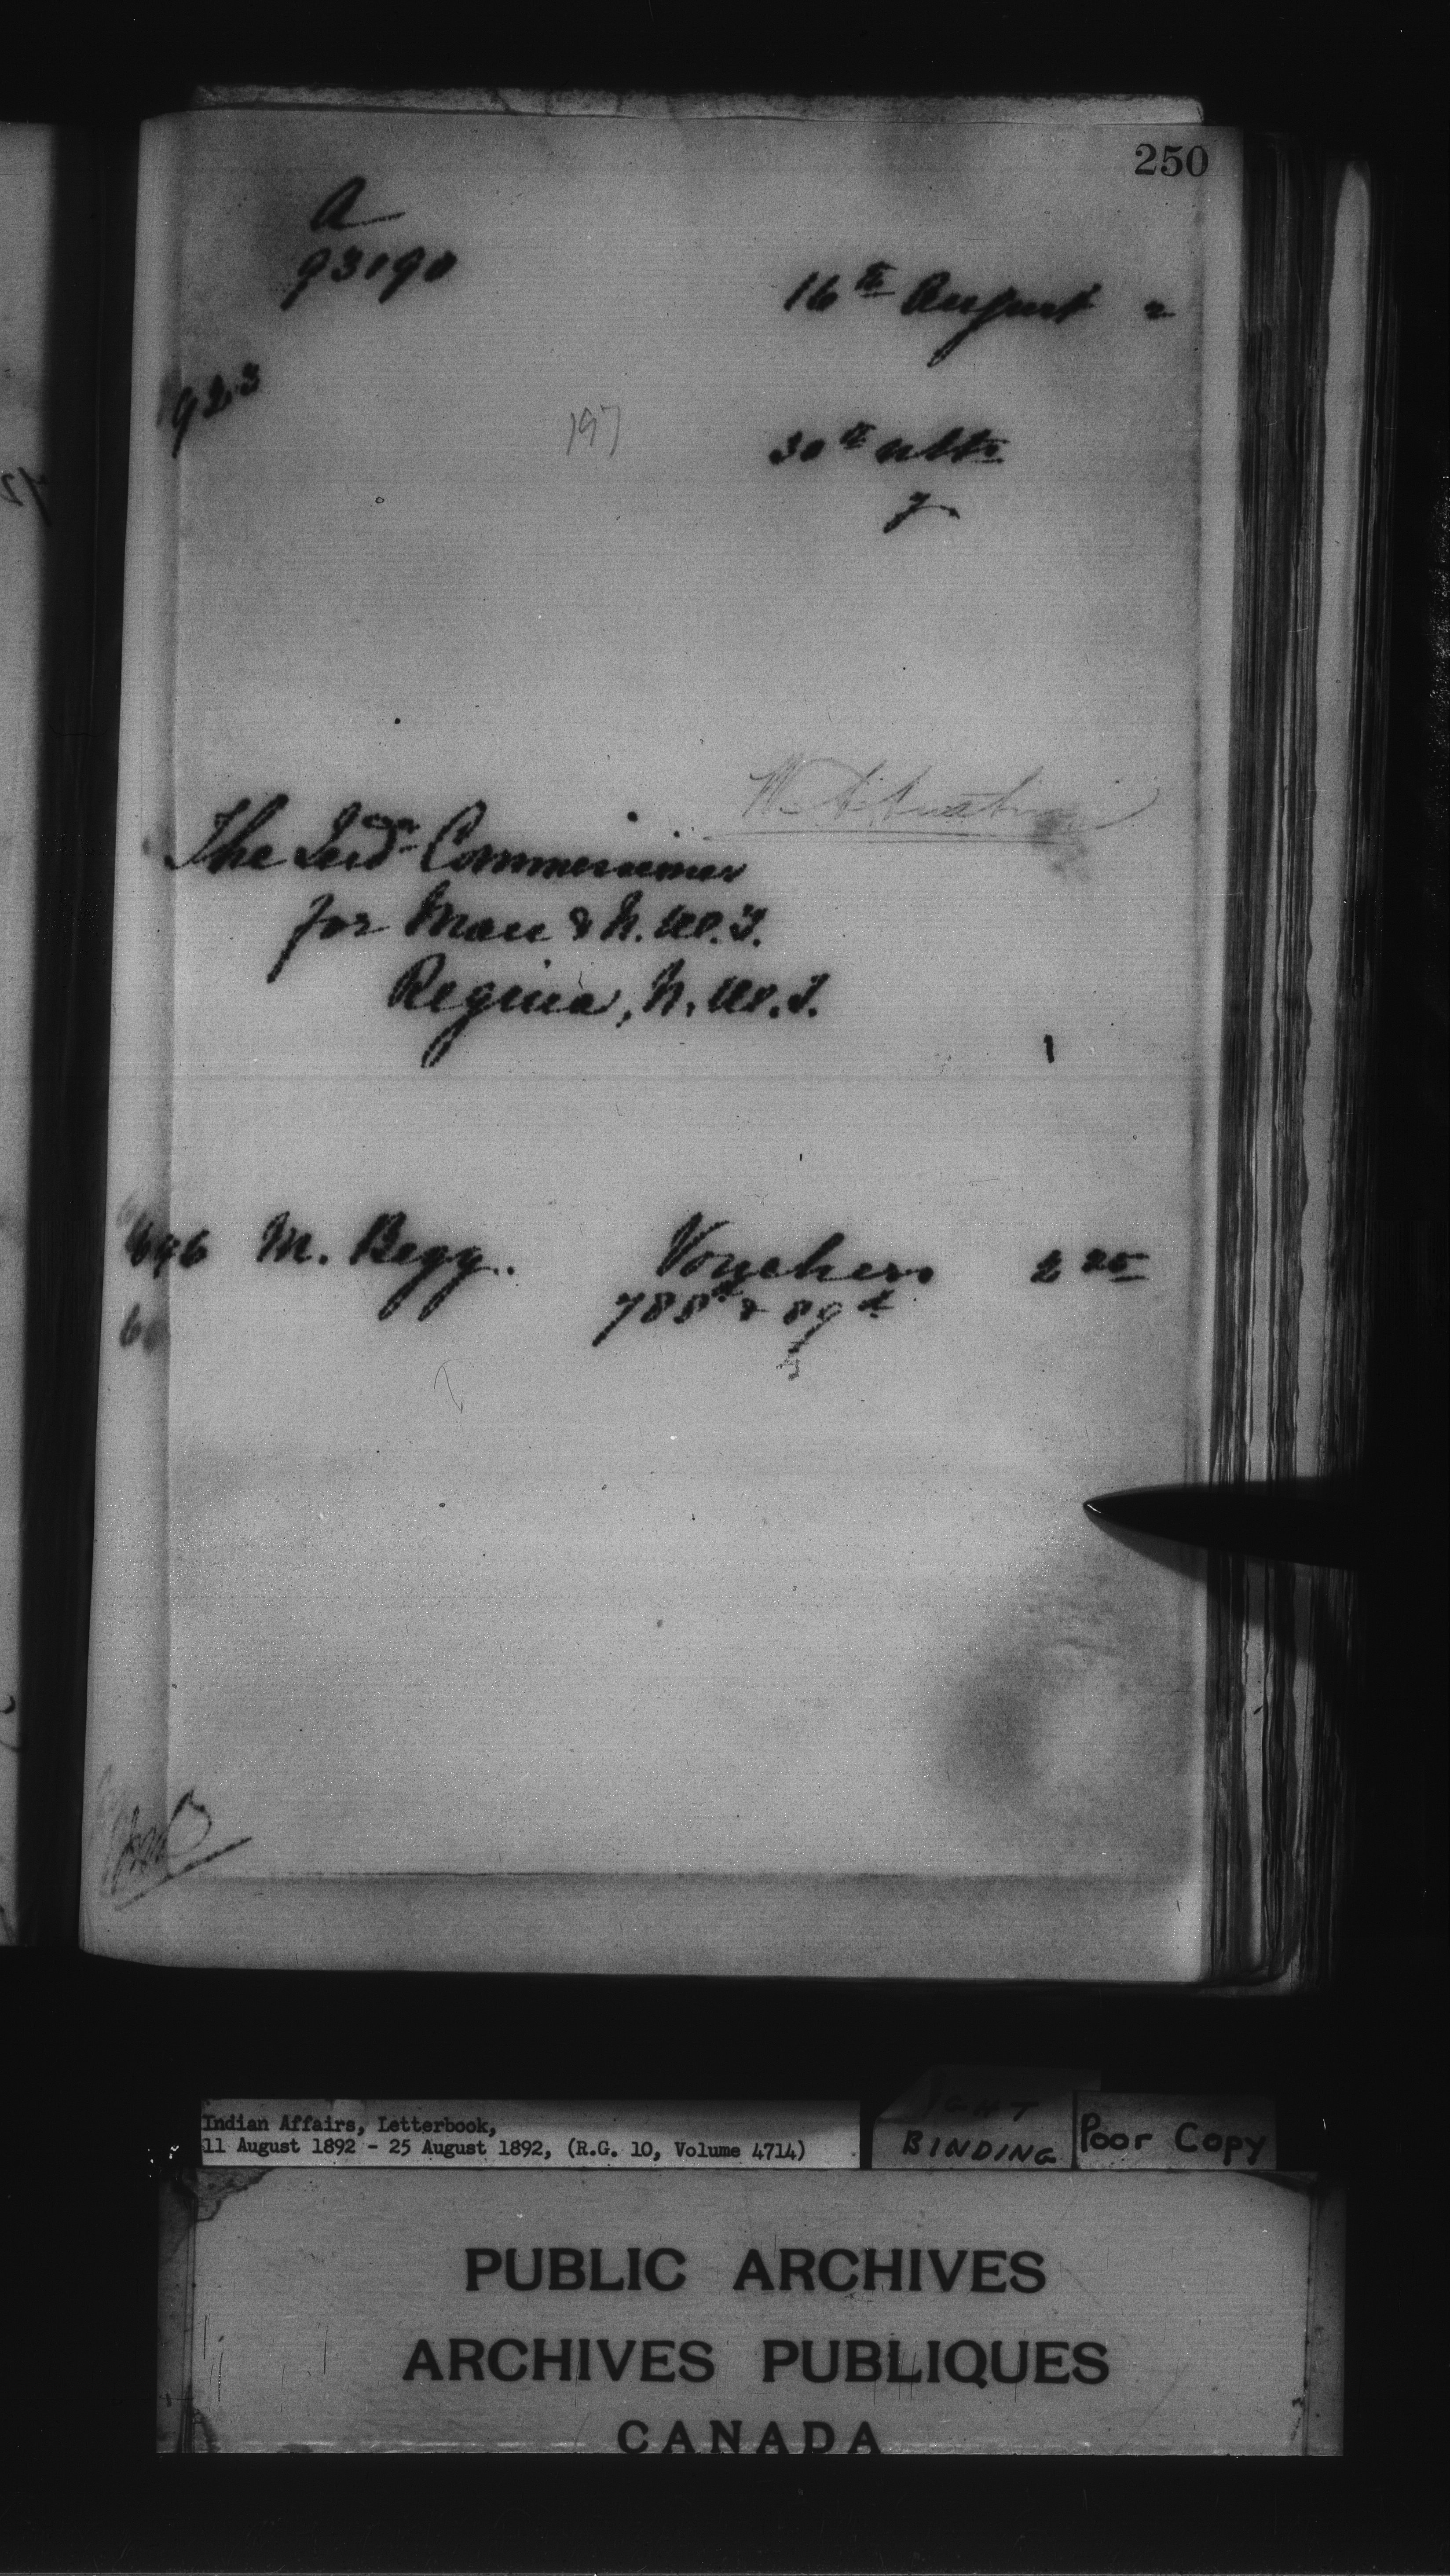 250
A
93190
16th August 2
923
197
30th ulto
7
The Ind. Commissioner
for Man & N. W. T.
Regina, N. W. T.
1
696 M. Begg. Vouchers 2 25
788d & 89d
60
Indian Affairs, Letterbook,
11 August 1892 - 25 August 1892, (R.G. 10, Volume 4714)
BINDING
Poor Copy
PUBLIC ARCHIVES
ARCHIVES PUBLIQUES
CANADA